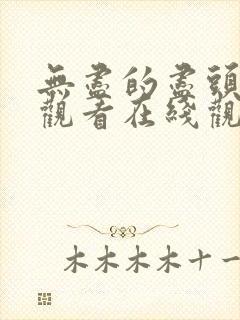 無盡的盡頭
觀看在綫觀
木木木木十一